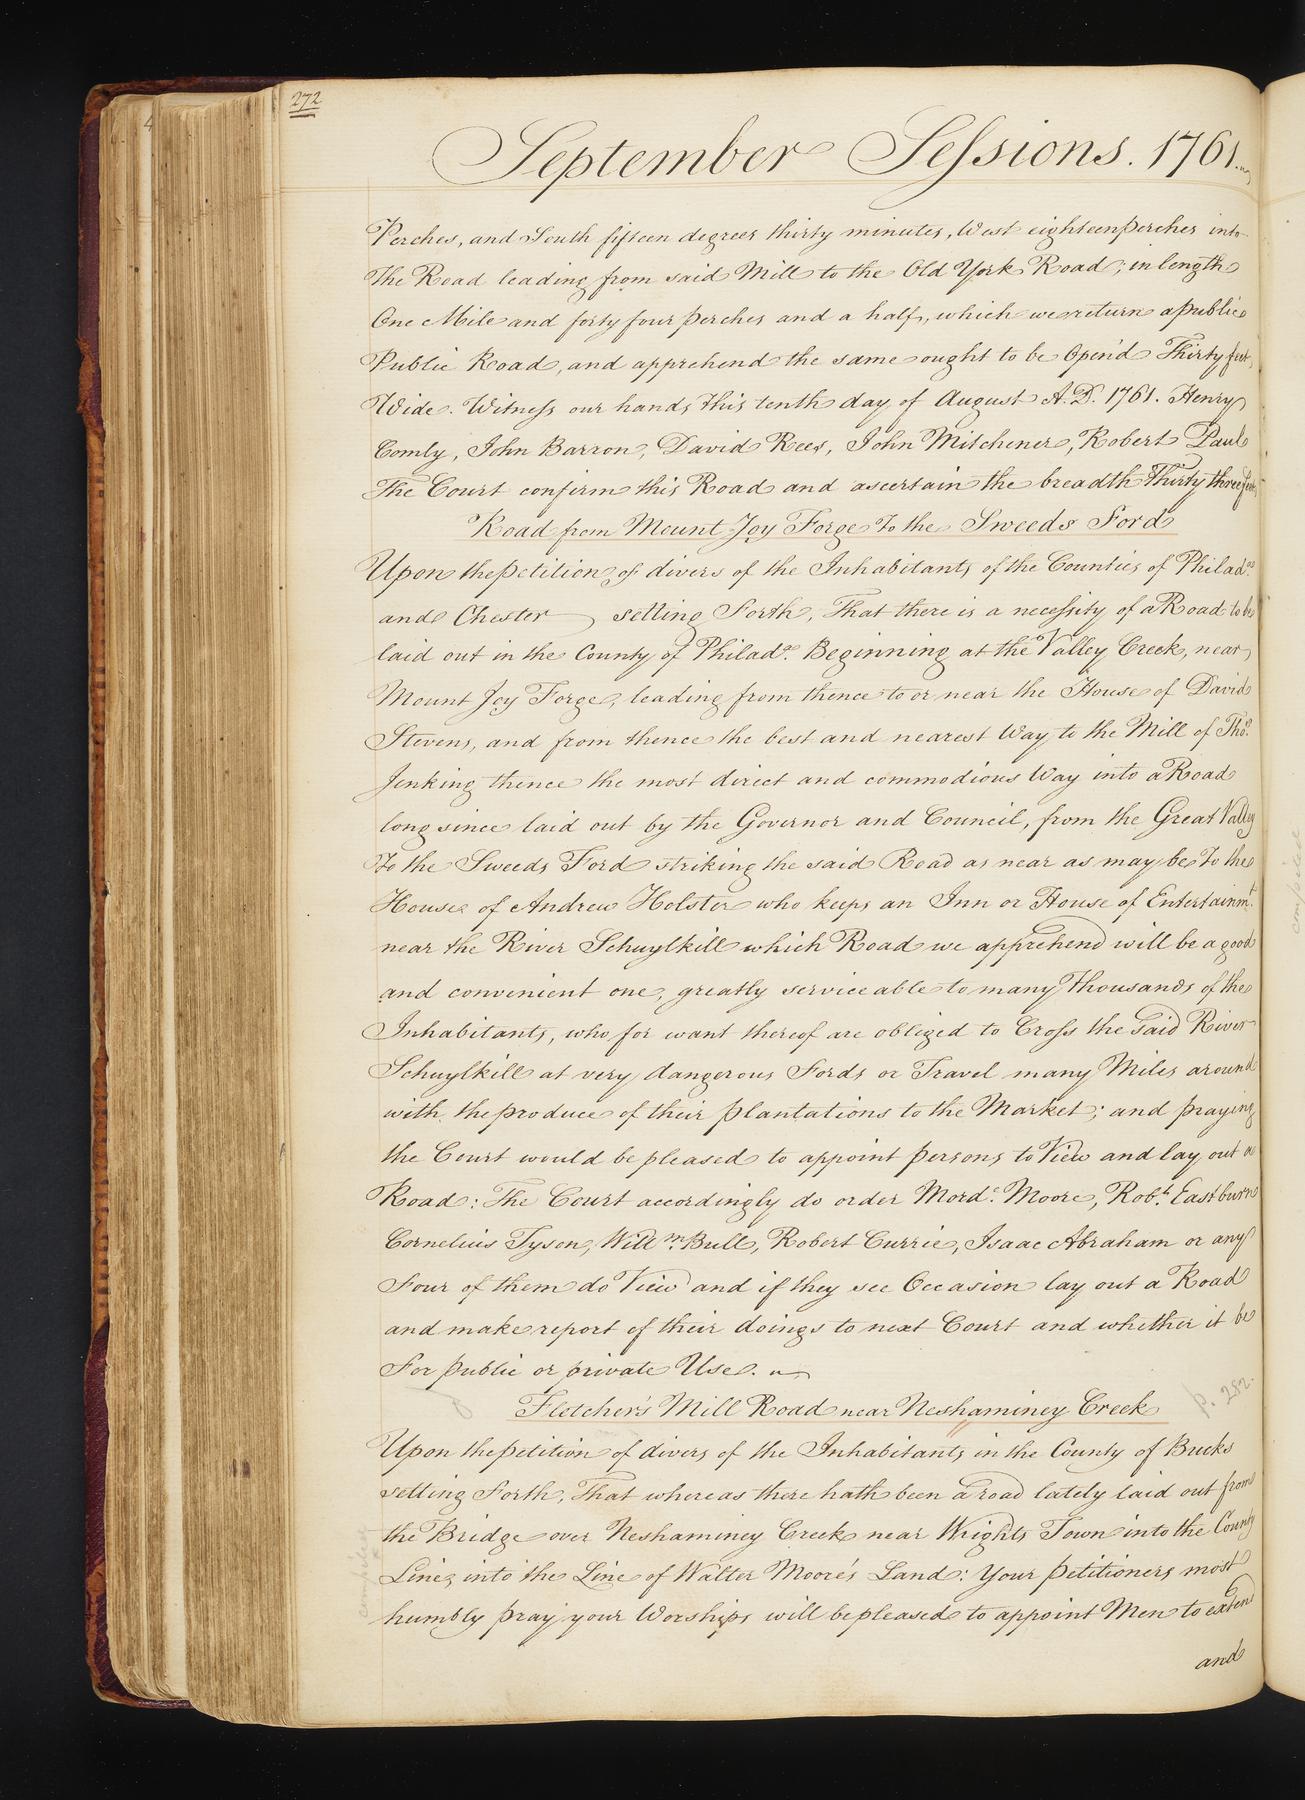 272
September Sessions. 1761.
Perches, and South fifteen degrees thirty minutes, West eighteen perches into
the Road leading from said Mill to the Old York Road; in length
One Mile and forty four perches and a half, which we return a public
Public Road, and apprehend the same ought to be Open'd Thirty feet
Wide. Witness our hands this tenth day of August A.D. 1761. Henry
Comly, John Barron, David Rees, John Mitchener, Robert Paul
The Court confirm this Road and ascertain the breadth Thirty three feet
Road from Mount Joy Forge To the Sweeds Ford
Upon the petition of divers of the Inhabitants of the Counties of Philad.a
and Chester setting Forth, That there is a necessity of a Road to be
laid out in the County of Philad.a Beginning at the Valley Creek, near
Mount Joy Forge, leading from thence to or near the House of David
Stevens, and from thence the best and nearest Way to the Mill of Tho.s
Jenking thence the most direct and commodious Way into a Road
long since laid out by the Governor and Council, from the Great Valley
To the Sweeds Ford striking the said Road as near as may be To the
House of Andrew Holster who keeps an Inn or House of Entertainm.t
near the River Schuylkill which Road we apprehend will be a good
and convenient one, greatly serviceable to many Thousands of the
Inhabitants, who for want thereof are obliged to Cross the said River
Schuylkill at very dangerous Fords or Travel many Miles around
with the produce of their plantations to the Market; and praying
the Court would be pleased to appoint persons to View and lay out a
Road: The Court accordingly do order Mord.e Moore, Rob.t Eastburn
Cornelius Tyson, Will.m Bull, Robert Currie, Isaac Abraham or any
Four of them do View and if they see Occasion lay out a Road
and make report of their doings to next Court and whether it be
For public or private Use.
Fletcher's Mill Road near Neshaminey Creek
p. 282.
Upon the petition of divers of the Inhabitants in the County of Bucks
setting Forth, That whereas there hath been a road lately laid out from
the Bridge over Neshaminey Creek near Wrights Town into the County
Line, into the Line of Walter Moore's Land: Your petitioners most
humbly pray your Worships will be pleased to appoint Men to extend
and